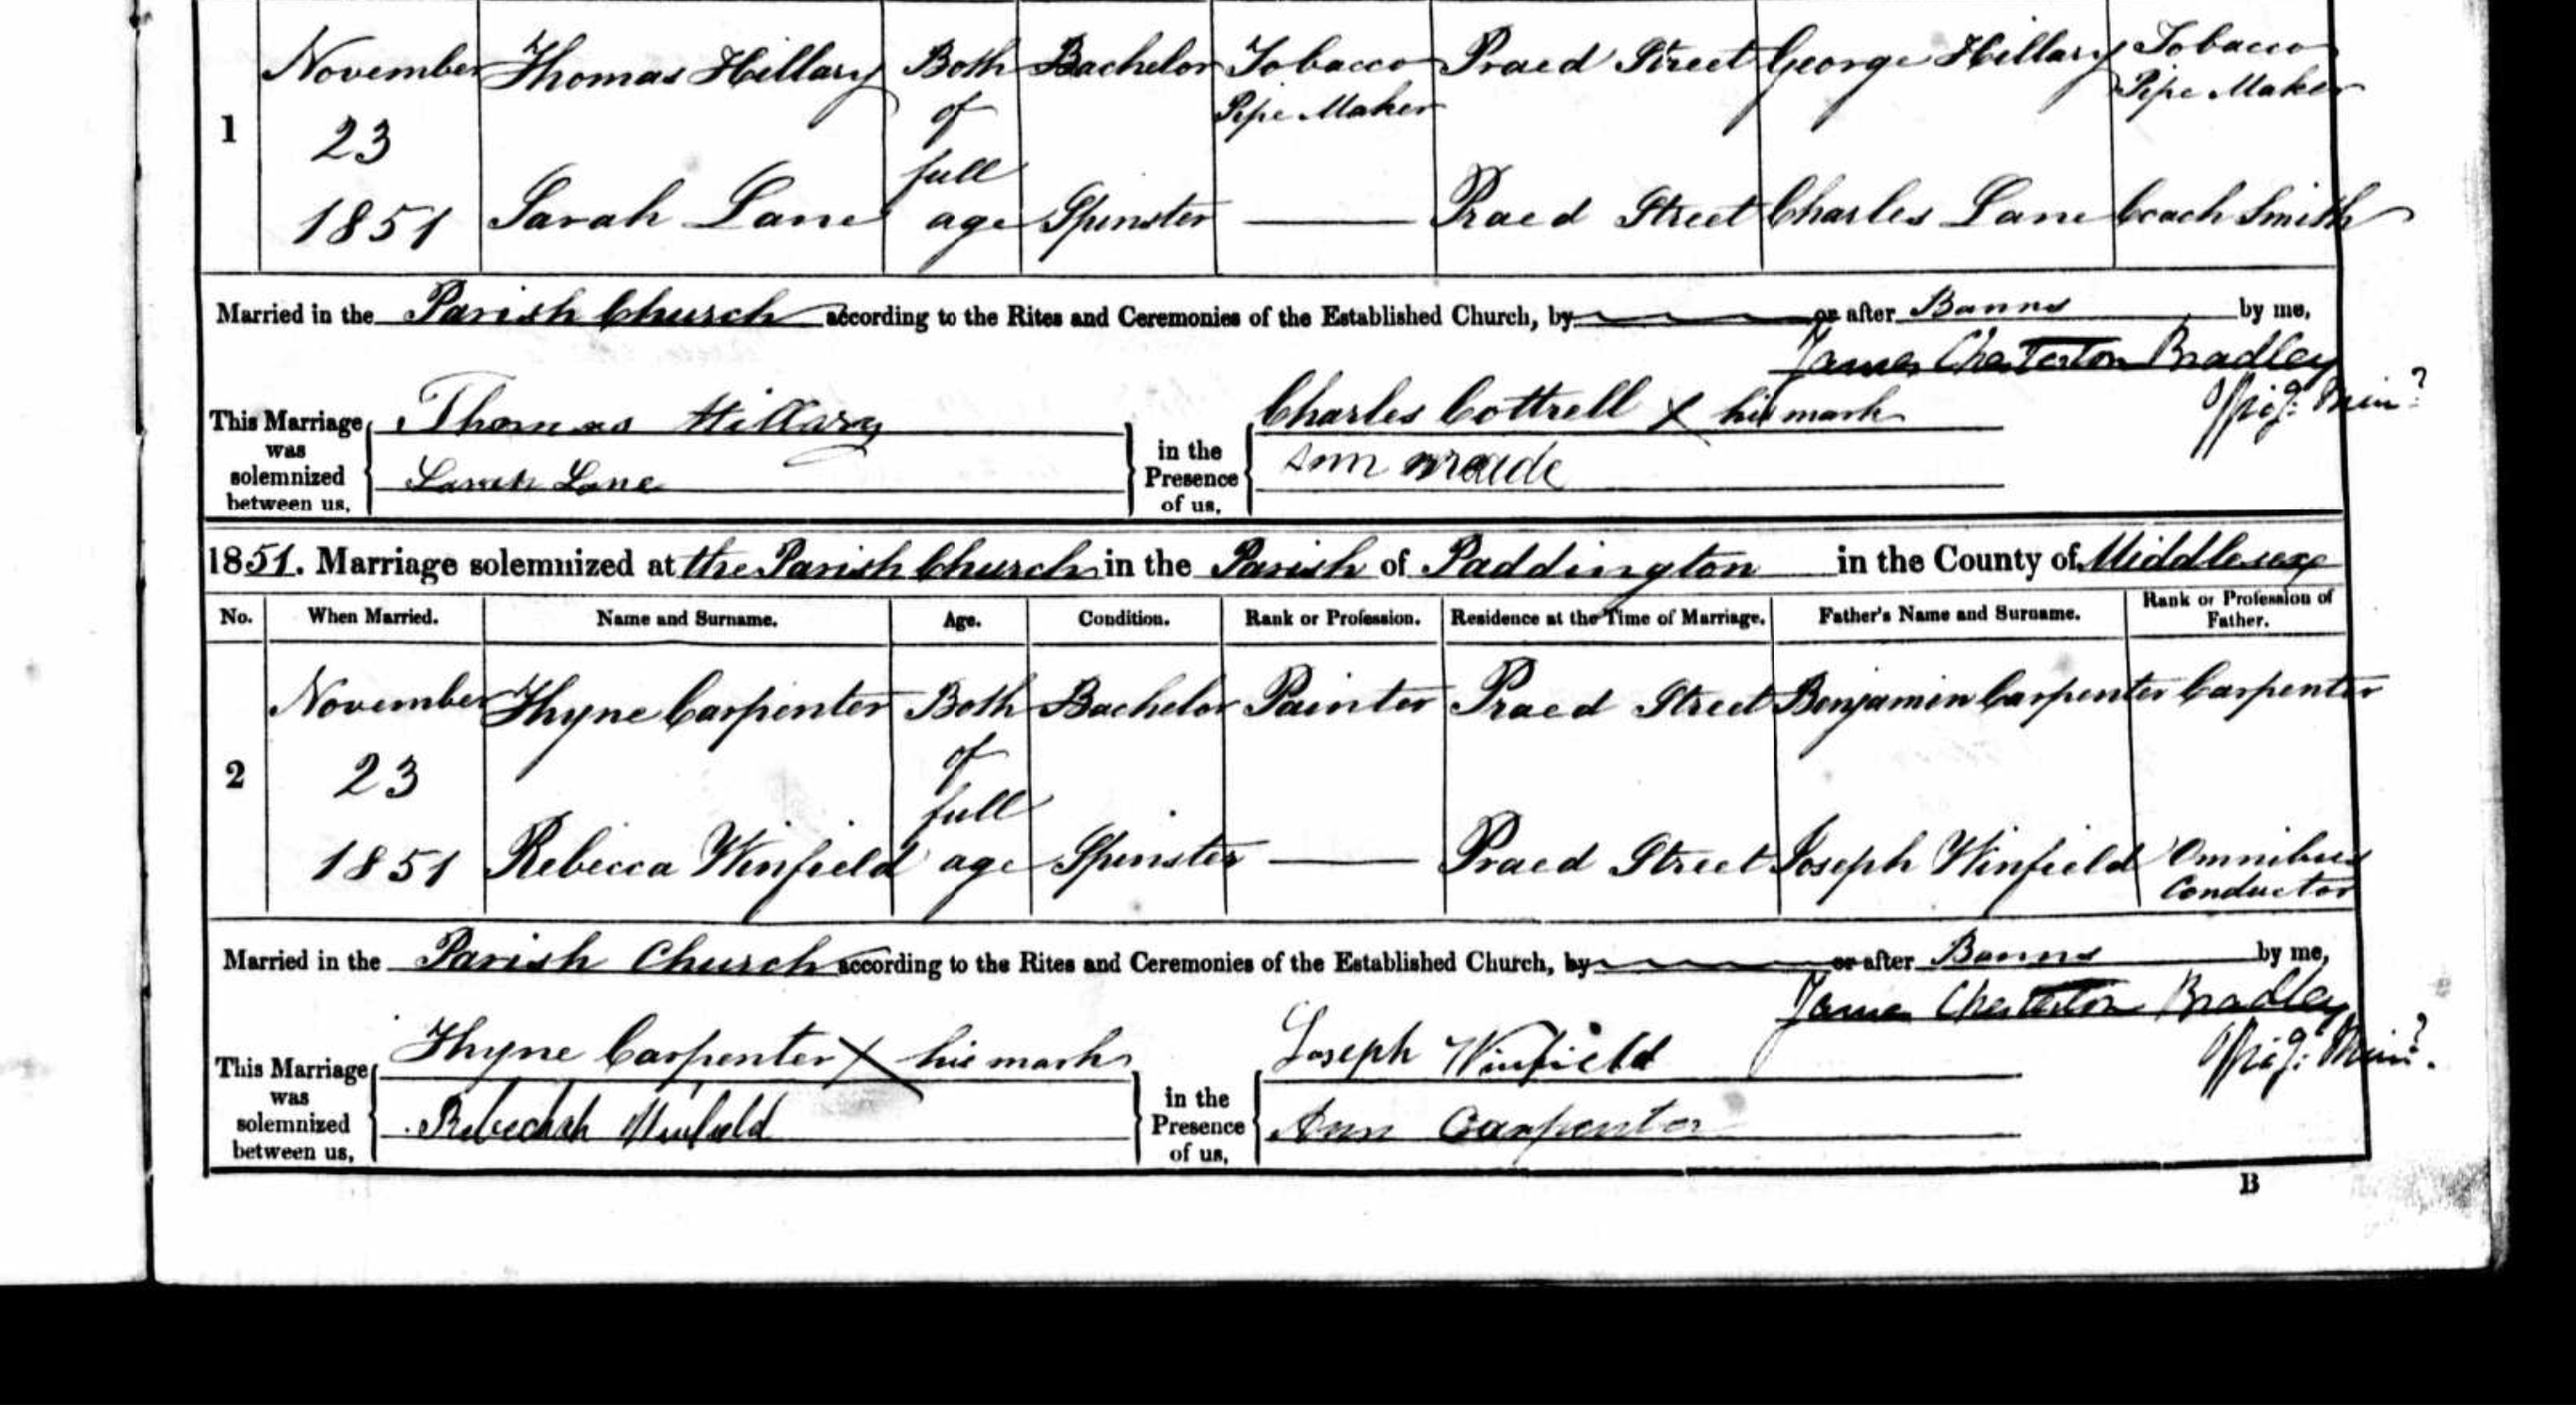 November Thomas Hillary Both Bachelor Tobacco Praed Street George Hillary Tobacco
of Pipe Maker Pipe Maker
1 23
full
1851 Sarah Lane age Spinster Praed Street Charles Lane Coach Smith
Married in the Parish Church according to the Rites and Ceremonies of the Established Church, by or after Banns by me,
James Chesterton Bradley
Offig: Minr
This Marriage was solemnized between us,
Thomas Hillary
Sarah Lane
in the Presence of us,
Charles Cottrell X his mark
Ann
1851. Marriage solemnized at the Parish Church in the Parish of Paddington in the County of Middlesex
No. When Married. Name and Surname. Age. Condition. Rank or Profession. Residence at the Time of Marriage. Father's Name and Surname. Rank or Profession of Father.
November Thyne Carpenter Both Bachelor Painter Praed Street Benjamin Carpenter Carpenter
of
2 23
full
1851 Rebecca Winfield age Spinster Praed Street Joseph Winfield Omnibus
Conductor
Married in the Parish Church according to the Rites and Ceremonies of the Established Church, by or after Banns by me,
James Chesterton Bradley
Offig: Minr.
This Marriage was solemnized between us,
Thyne Carpenter X his mark
Winfield
in the Presence of us,
Joseph Winfield
Ann Carpenter
B